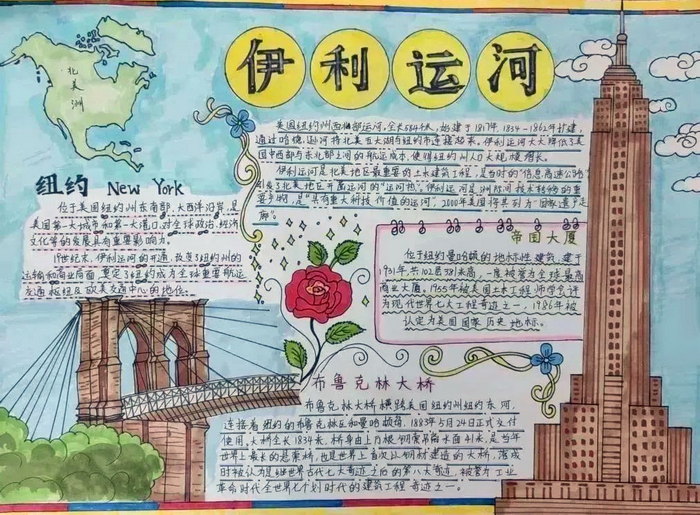 伊利运河
北美洲
美国纽约州西北部运河,全长584千米,始建于1817年,1834-1862年扩建,
通过哈德逊河将北美五大湖与纽约市连接起来,伊利运河大大降低了美
国中西部与东北部之间的航运成本,使得纽约州人口大规模增长。
伊利运河是北美地区最重要的土木建筑工程,是当时的"信息高速公路"
引发了北美地区开凿运河的"运河热"。伊利运河是洲际间技术转移的重
要为例,是"具有重大科技价值的运河",2000年美国将其列为"国家遗产走
廊"。
纽约 New York
位于美国纽约州东南部,大西洋沿岸,是
美国第一大城市和第一大港口,对全球政治、经济
文化等的发展具有重要影响力。
19世纪末,伊利运河的开通,改变了纽约州的
运输和商业局面,奠定了纽约成为全球重要航运
交通枢纽及欧美交通中心的地位。
帝国大厦
位于纽约曼哈顿的地标性建筑,建于
1931年,共102层381米高,一度被誉为全球最高
商业大厦,1955年被美国土木工程师学会评
为现代世界七大工程奇迹之一,1986年被
认定为美国国家历史地标。
布鲁克林大桥
布鲁克林大桥横跨美国纽约州纽约东河,
连接着纽约的布鲁克林区和曼哈顿岛,1883年5月24日正式交付
使用,大桥全长1834米,桥身由上万根钢索吊离水面41米,是当年
世界上最长的悬索桥,也是世界上首次以钢材建造的大桥,落成
时被认为是继世界古代七大奇迹之后的第八大奇迹,被誉为工业
革命时代全世界七个划时代的建筑工程奇迹之一。